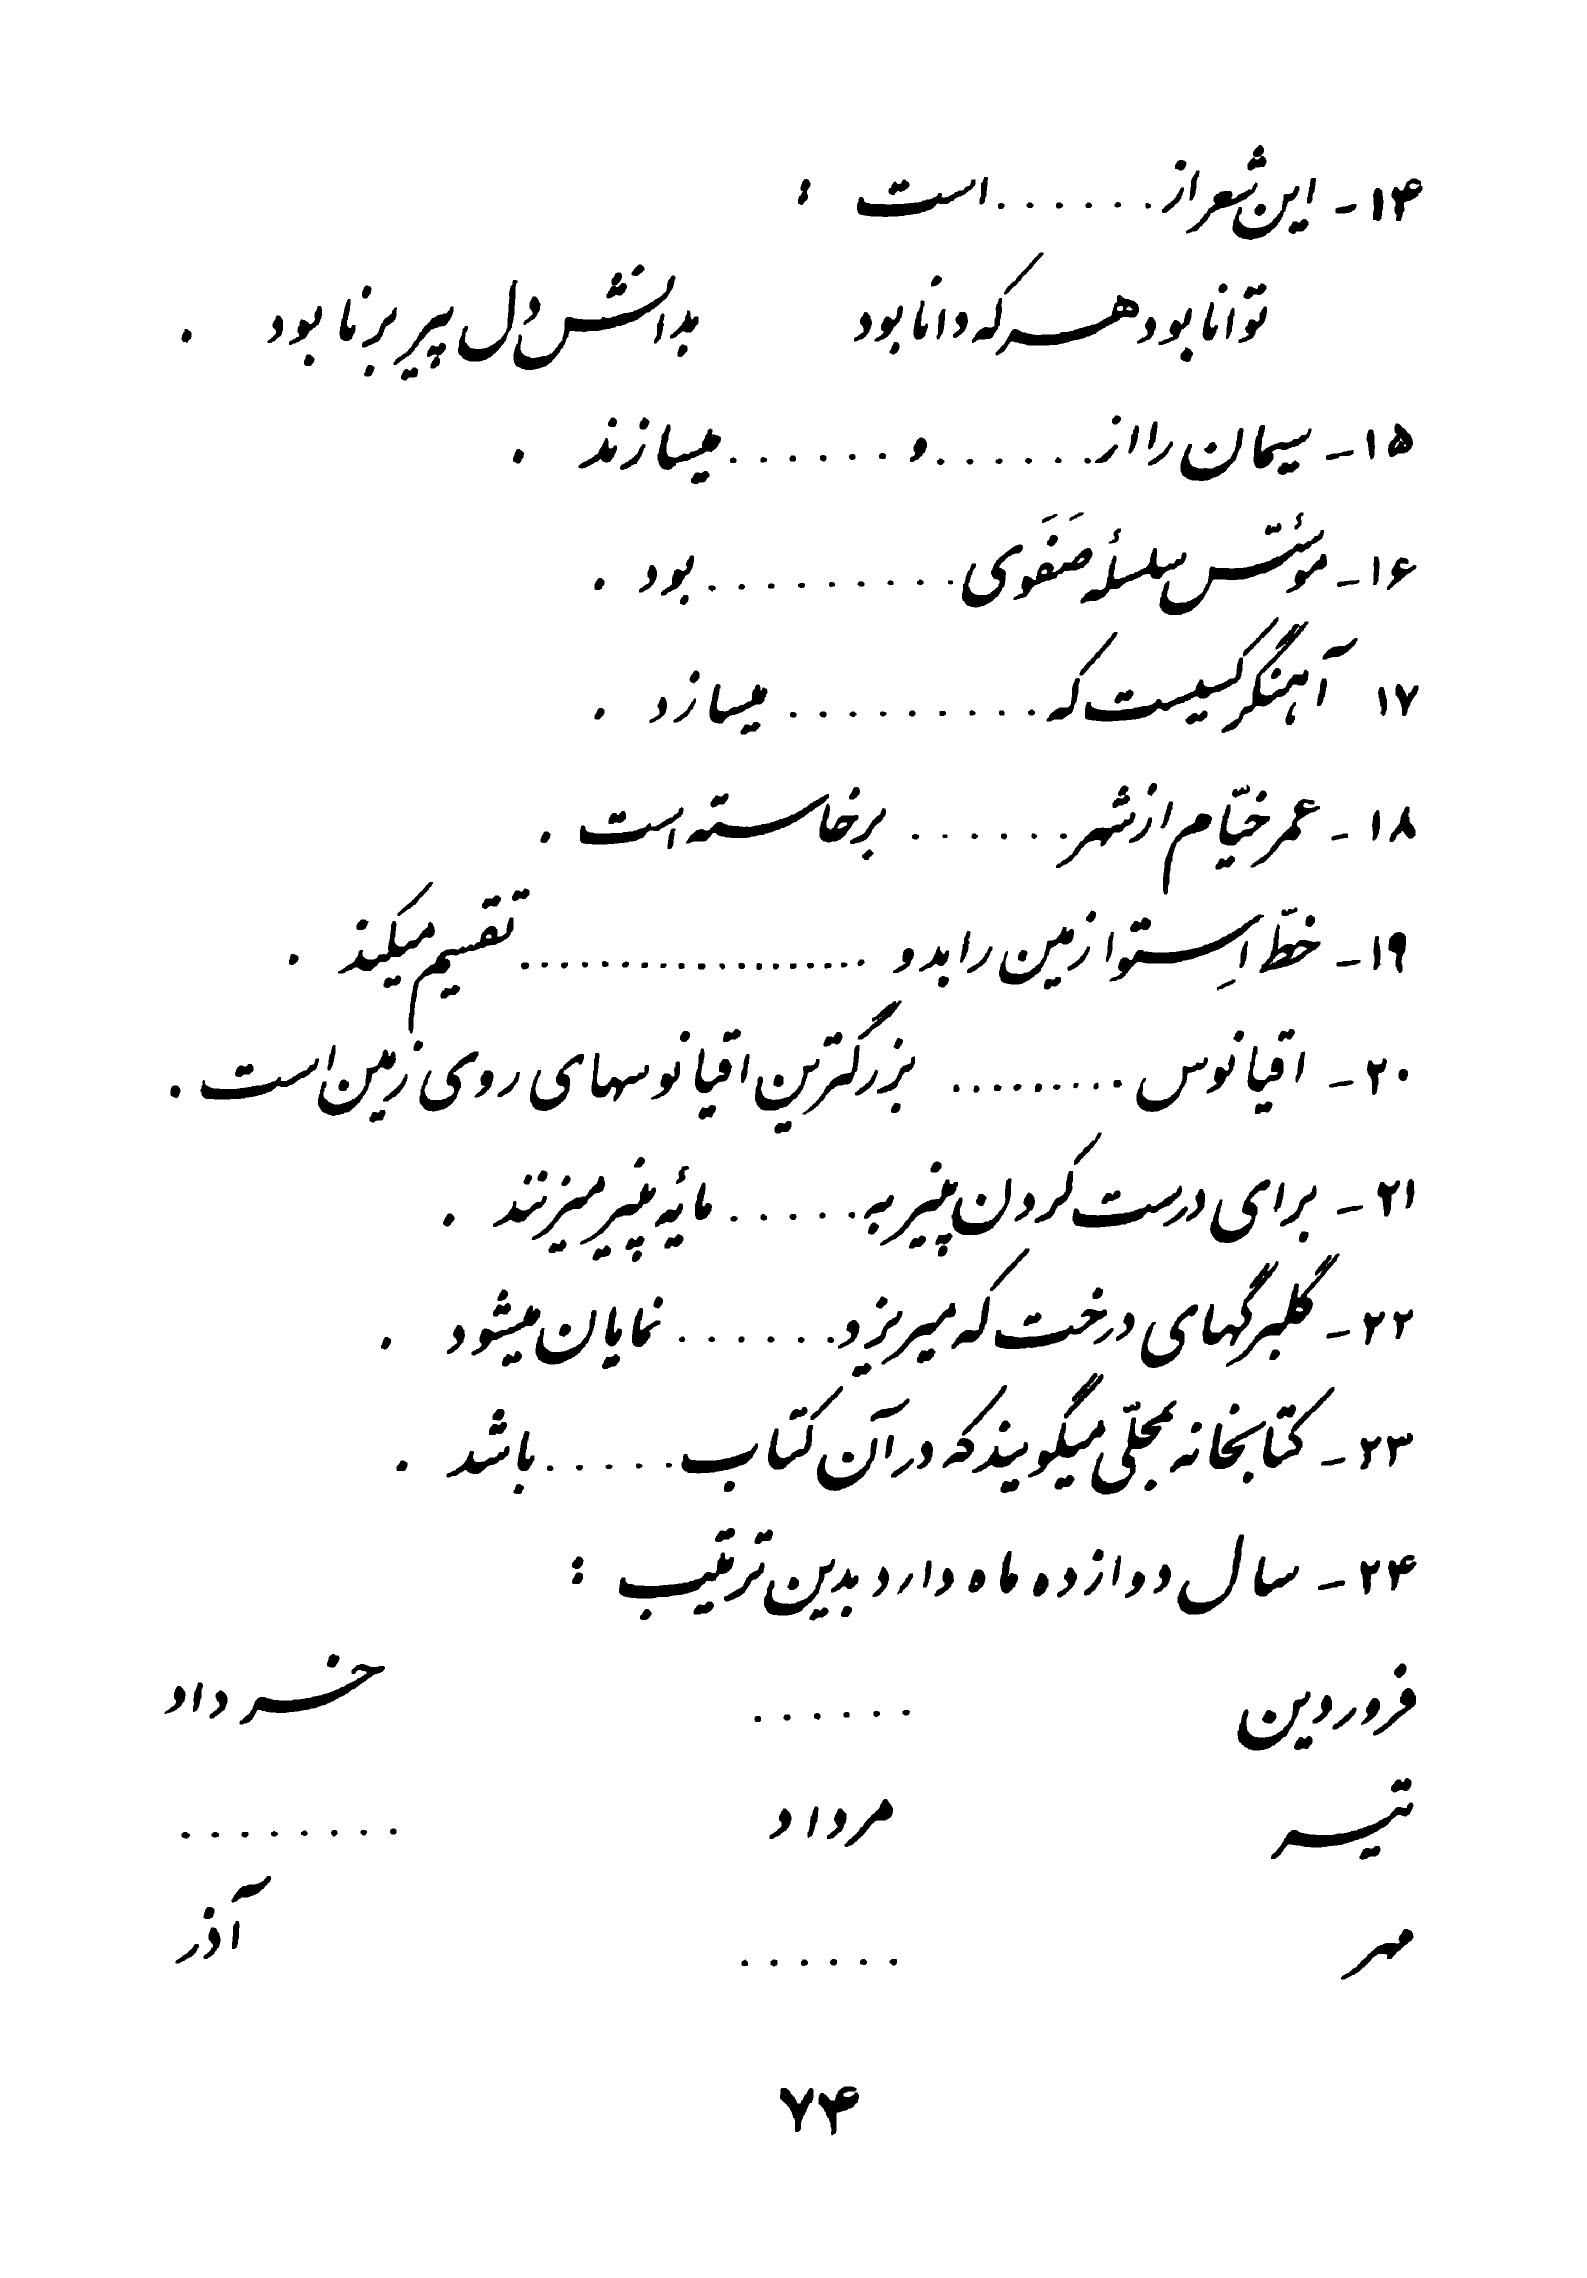 ۱۴- این شعر از ...... است :
توانا بود هر که دانا بود بدانش دل پیر برنا بود .
۱۵- سیمان را از ...... و ...... میسازند .
۱۶- مؤسّس سلسلهٔ صَفَوی ......... بود .
۱۷ آهنگر کسیست که ......... میسازد .
۱۸- عمر خیّام از شهر ...... برخاسته است .
۱۹- خطّ اِستوا زمین را بدو .................. تقسیم میکند .
۲۰- اقیانوس ......... بزرگترین اقیانوسهای روی زمین است .
۲۱- برای درست کردن پنیر به ..... مایهٔ پنیر میزنند .
۲۲- گلبرگهای درخت که میریزد ...... نمایان میشود .
۲۳- کتابخانه بمحلّی میگویند که در آن کتاب ..... باشد .
۲۴- سال دوازده ماه دارد بدین ترتیب :
فروردین ...... خرداد
تیر مرداد ........
مهر ...... آذر
۷۴